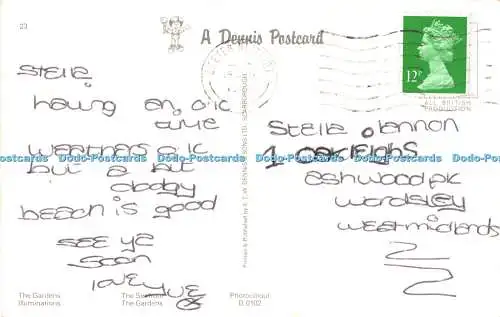 23
A Dennis Postcard
12P
ALL BRITISH
PRODUCTION
Stella
having an o.ic
time
weathers o.ic
but a bit
cloday
beach is good
see ya
soon
love
Stella o lennon
1 Oakleighs
ashwood pk
wordsley
west midlands
Printed & Published by E.T.W. DENNIS & SONS LTD., SCARBOROUGH
Dodo-Postcards Dodo-Postcards Dodo-Postcards Dodo-Postcards Dodo-Postcards Dodo-Postcards Dodo-Postcards
The Gardens
Illuminations
The Gardens
Photocolour
D.0102